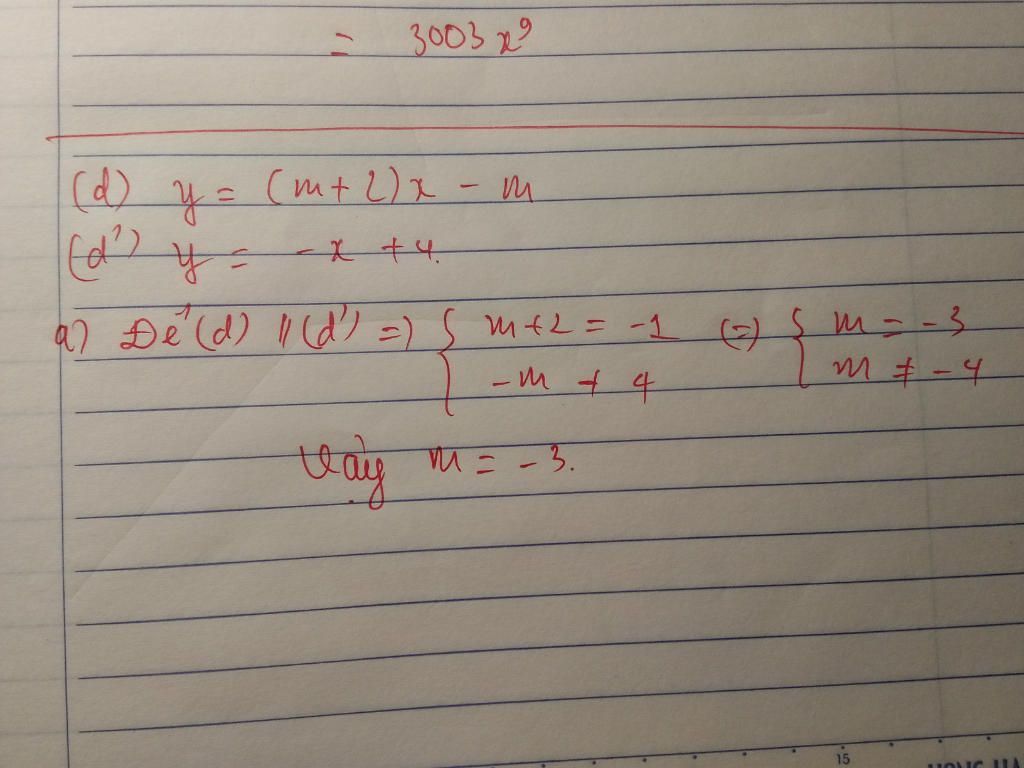 = 3003 x⁹
(d) y = (m + 2)x - m
(d') y = -x + 4.
a) Để (d) // (d') => { m + 2 = -1 (=) { m = -3
-m ≠ 4 m ≠ -4
Vậy m = -3.
15